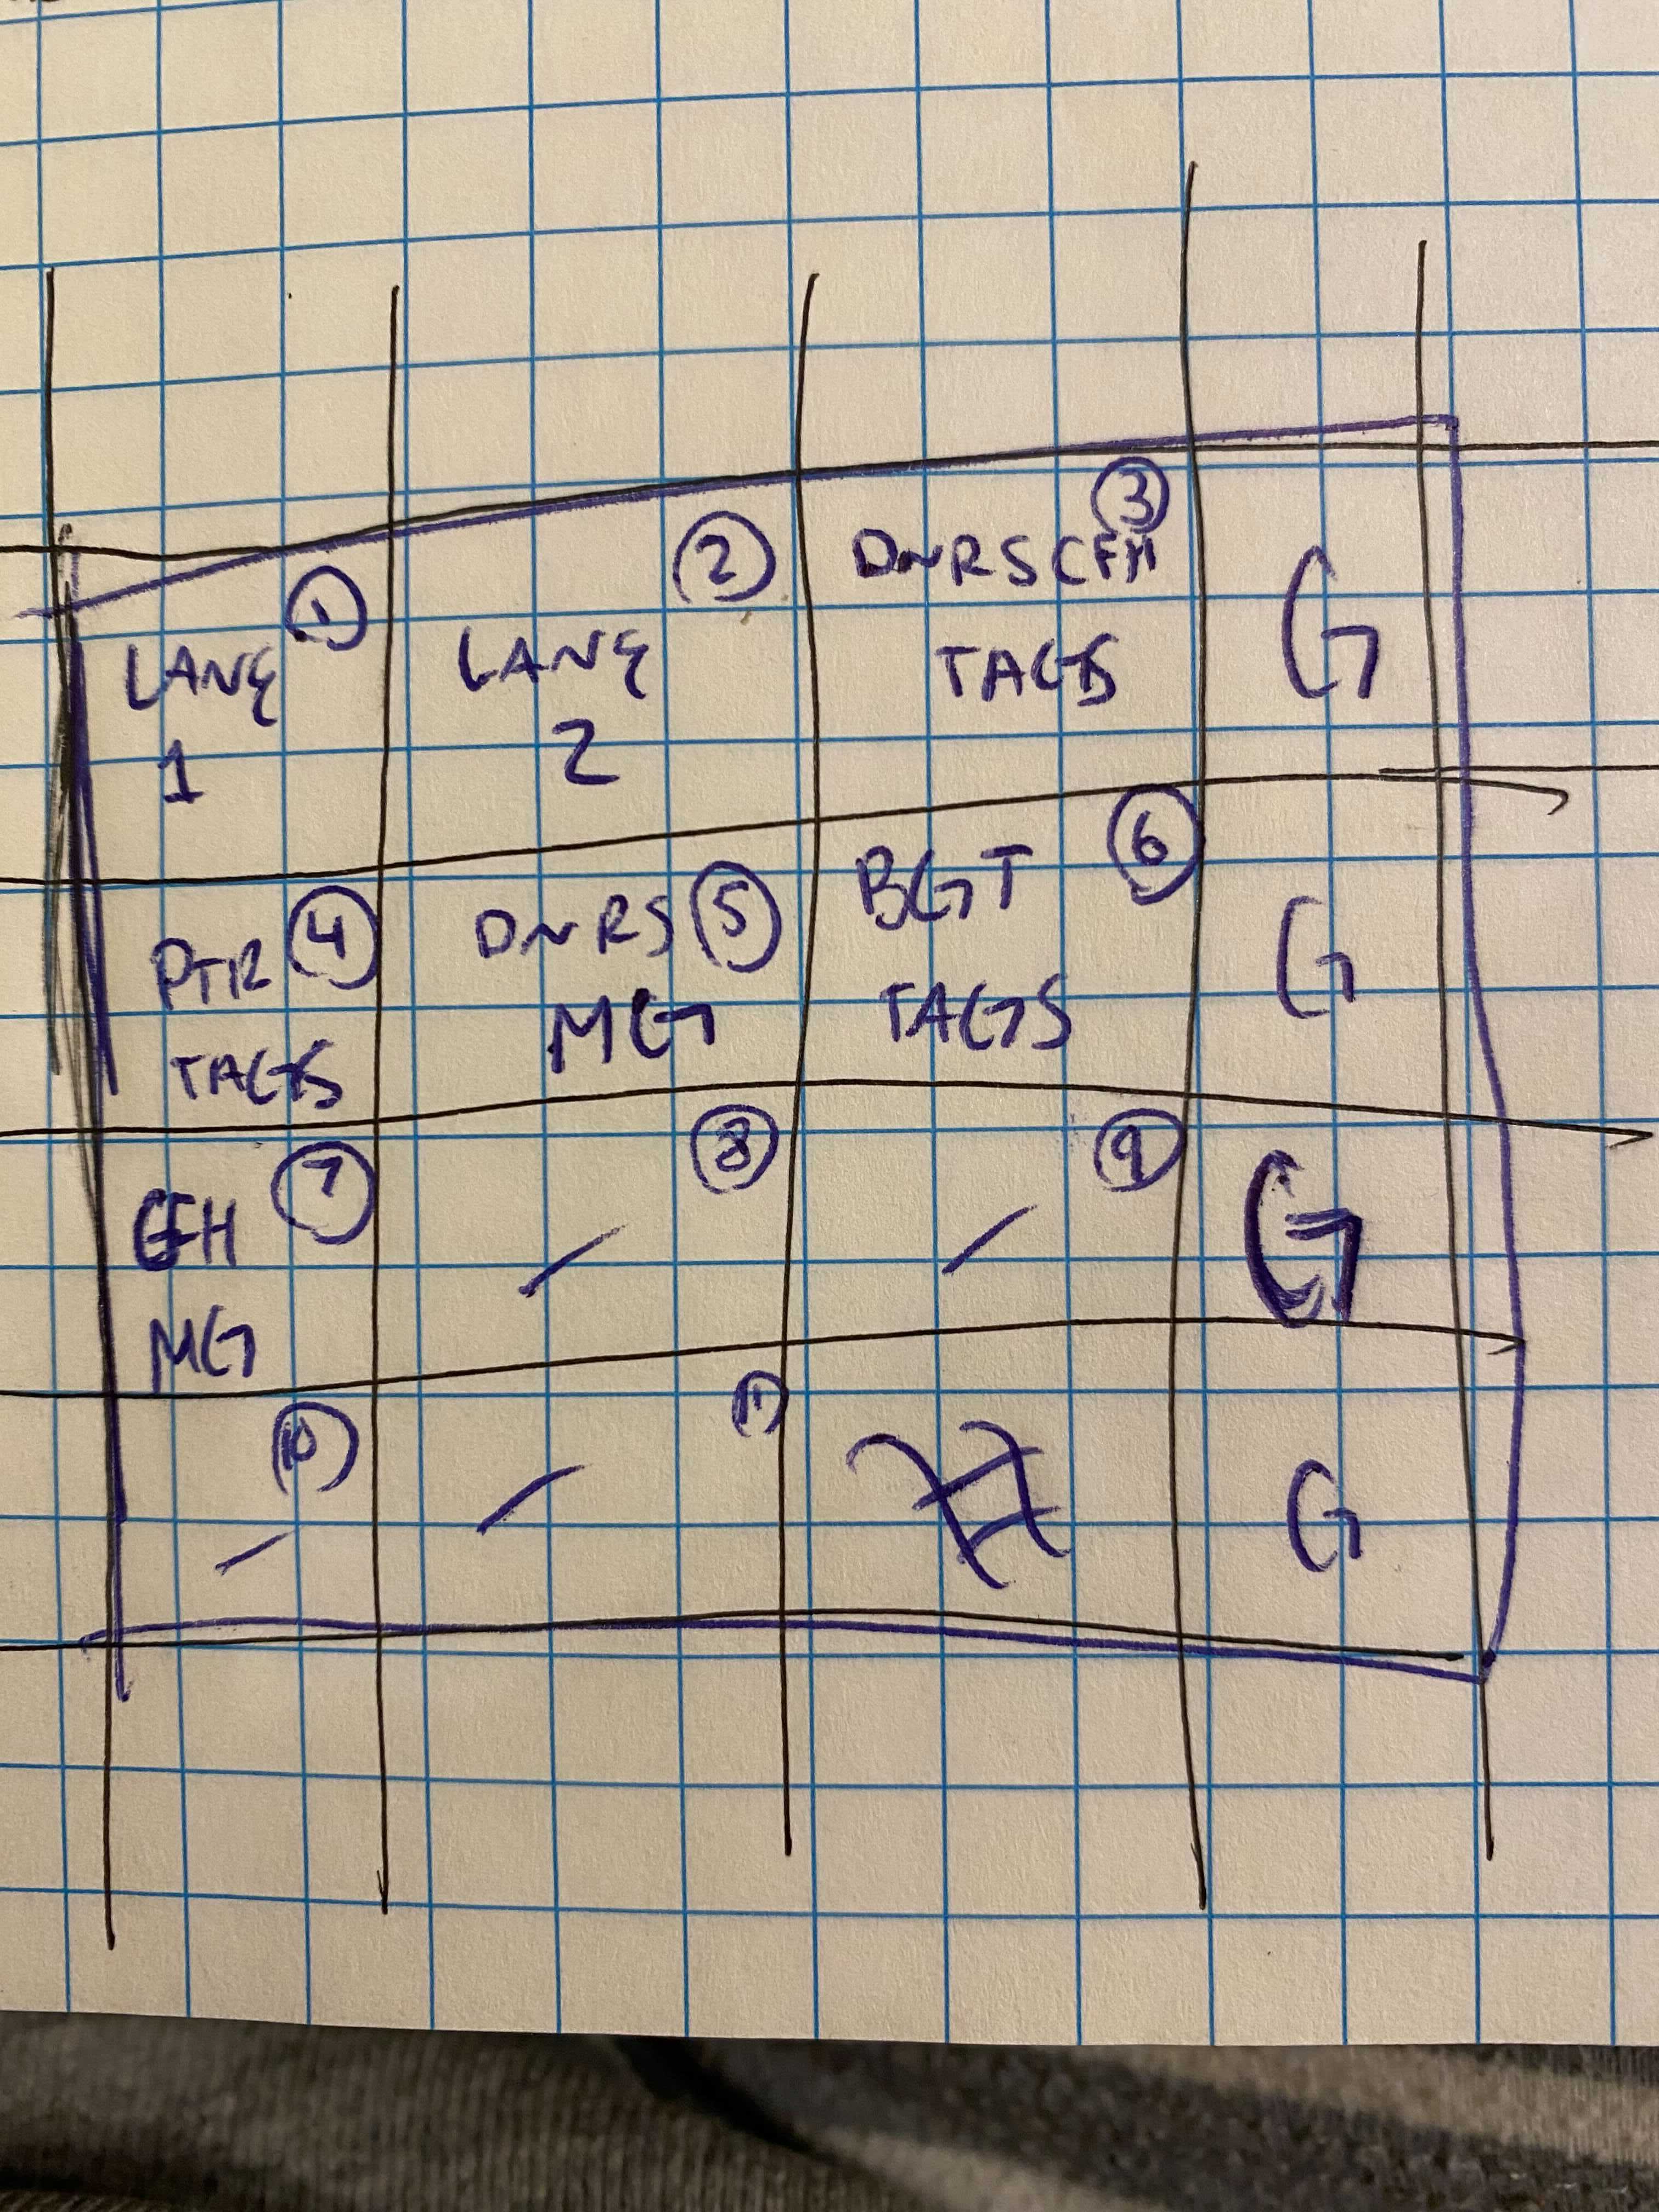 LANE ①
1
② LANE
2
③ DNRS CFH
TAGS
G
PTR ④
TAGS
DNRS ⑤
MG
BGT ⑥
TAGS
G
⑦
MG
⑧
/
⑨
/
G
⑩
/
⑪
/
G